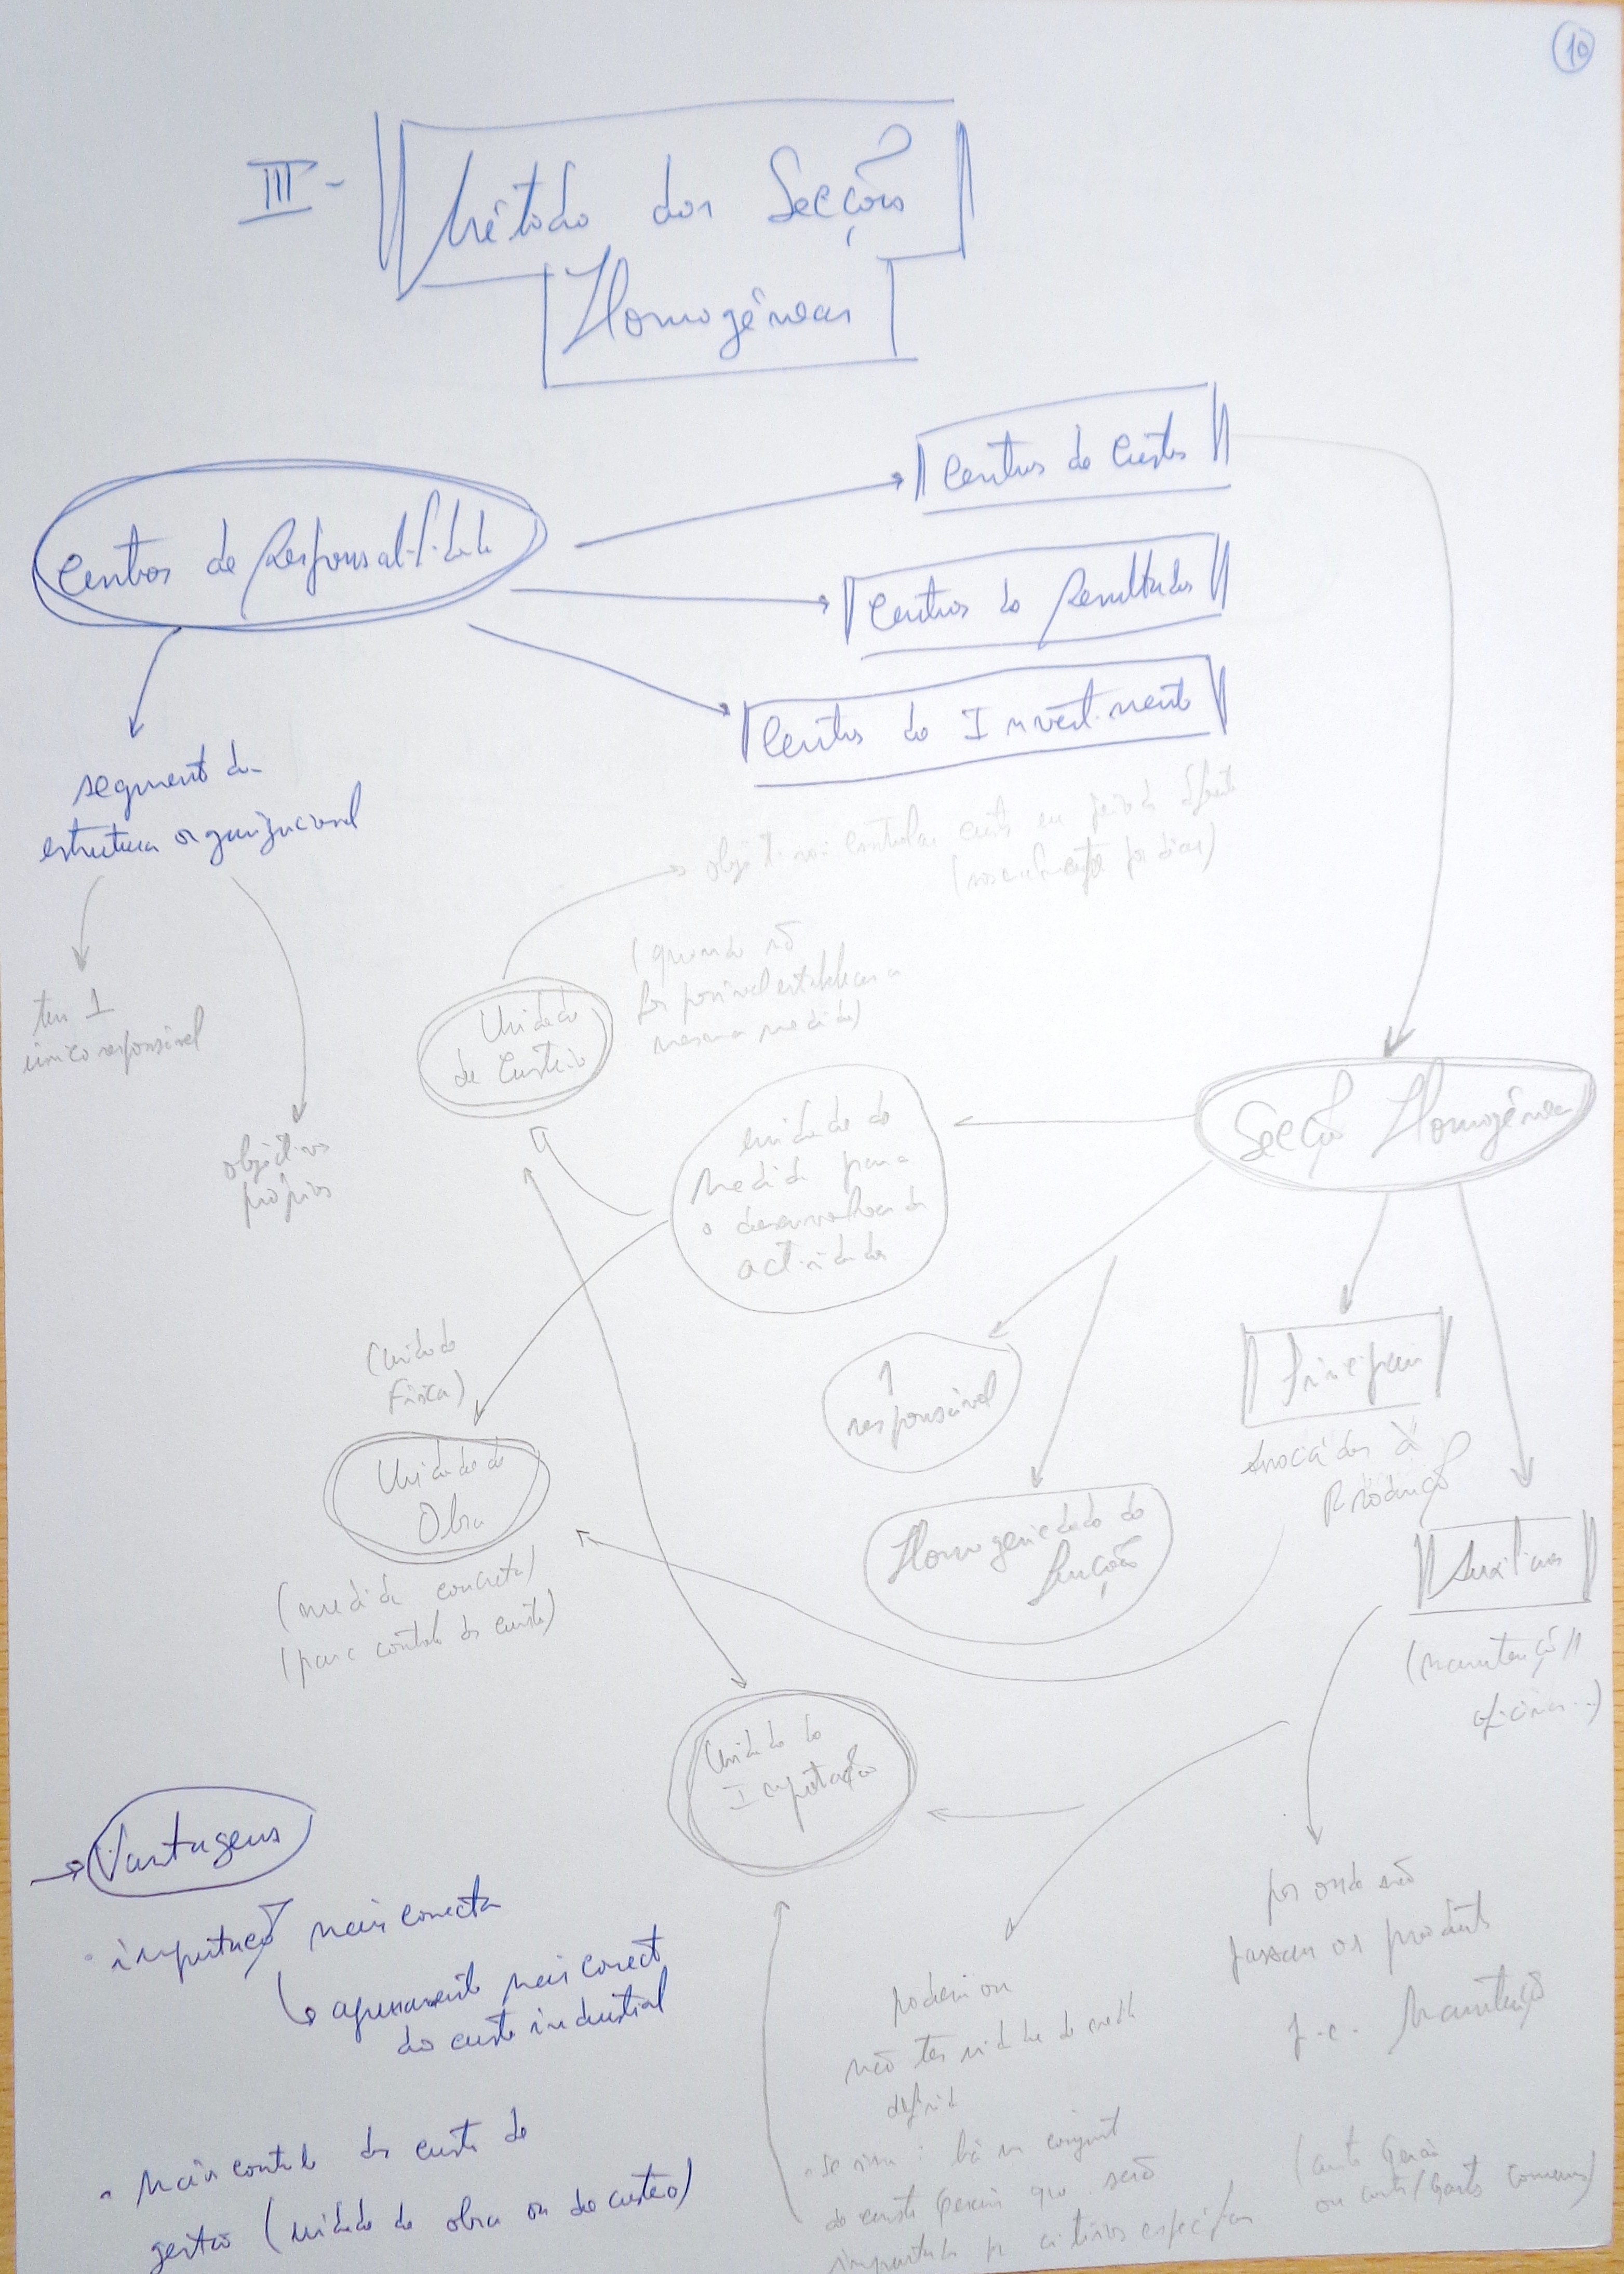 10
III - Método das Secções
Homogéneas
Centros de Responsabilidade
Centros de Custos
Centros de Resultados
Centros de Investimento
segmento da
estrutura organizacional
tem 1
único responsável
objetivos
próprios
objetivo: controlar custos em período
(quando não
for possível estabelecer a
mesma medida)
Unidade
de Custeio
Secção Homogénea
unidade de
medida para
o desenvolver da
actividades
1
responsável
Homogeniedade de
função
Principais
Associadas à
Produção
Auxiliares
(manutenção,
oficinas...)
(unidade
física)
Unidade de
Obra
(medida concreta)
(para controlo dos custos)
Unidade de
Imputação
por onde não
passam os produtos
p.e. Manutenção
(custos Gerais
ou custos/Gastos comuns)
podem ou
não ter unidade de medida
definida
- se sim: há um conjunto
de custos Gerais que serão
imputados por critérios específicos
→ Vantagens
• imputação mais correcta
↳ apuramento mais correcto
do custo industrial
• Mais controlo dos custos de
gestão (unidade de obra ou de custeio)